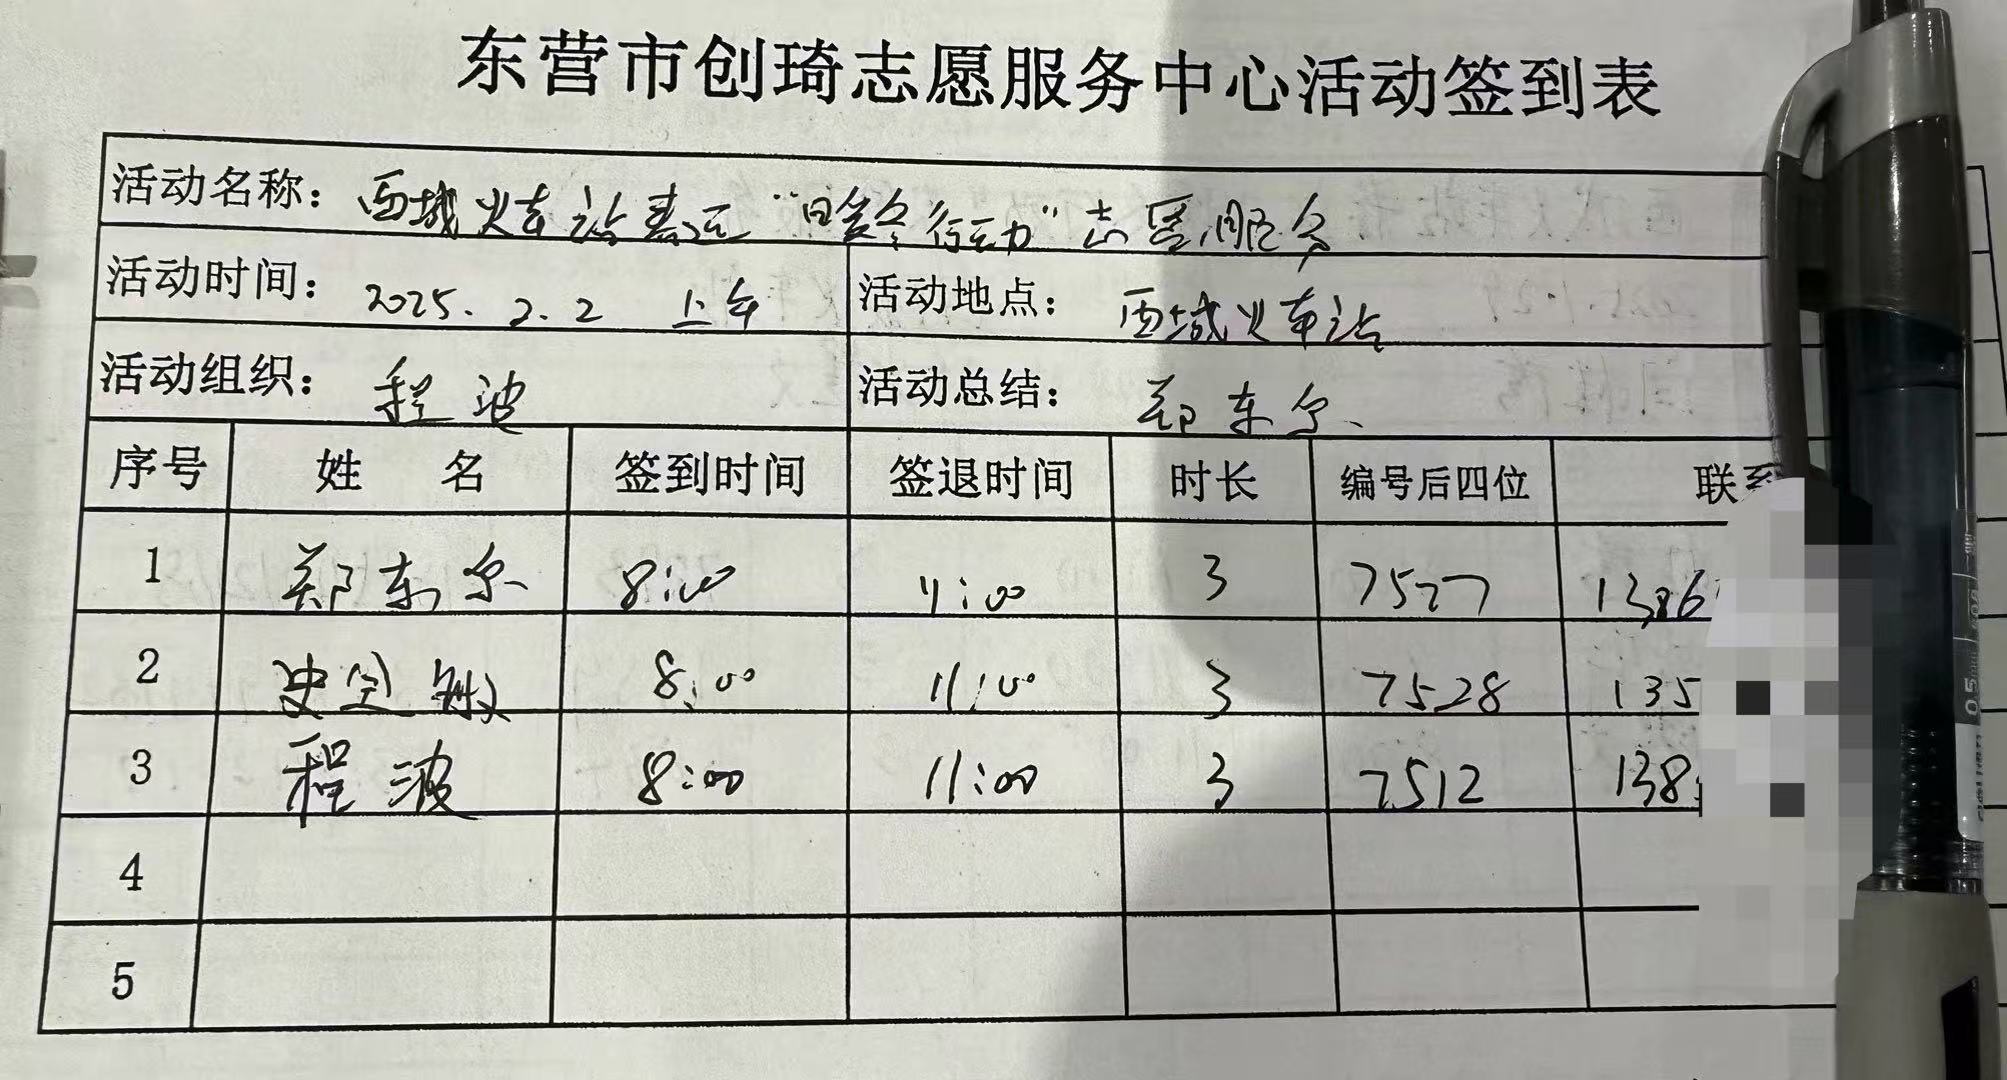 东营市创琦志愿服务中心活动签到表
活动名称: 西城火车站春运"暖冬行动"志愿服务
活动时间: 2025.2.2 上午 活动地点: 西城火车站
活动组织: 程波 活动总结: 郑东尔
序号 姓 名 签到时间 签退时间 时长 编号后四位 联系
1 郑东尔 8:00 11:00 3 7527 1386
2 史宝敏 8:00 11:00 3 7528 135
3 程波 8:00 11:00 3 7512 138
4
5